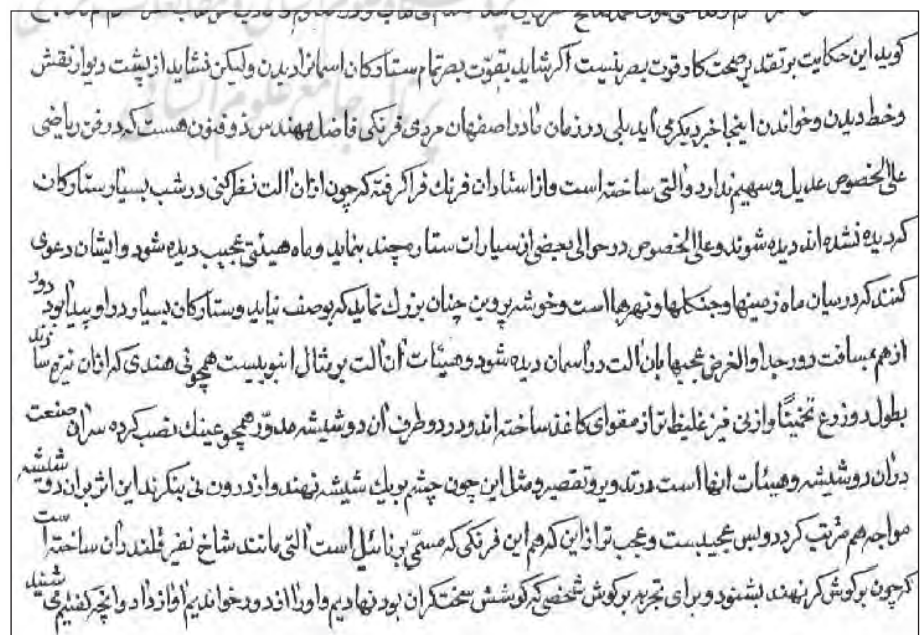 کوید این حکایت بر تقدیر صحت کار قوت بصر نیست اکر شاید بقوت بصر تمام ستارکان اسمانرا دیدن ولیکن نشاید از پشت دیوار نقش
وخط دیدن وخواندن اینجا خبر دیکر می اید بلی در زمان ما در اصفهان مردی فرنکی فاضل مهندس ذو فنون هست که در فن ریاضی
علی الخصوص عدیل وسهیم ندارد والتی ساخته است واز استادان فرنک فرا کرفته که چون ازان الت نظر کنی در شب بسیار ستارکان
که دیده نشده اند دیده شوند وعلی الخصوص در حوالی بعضی از سیارات ستاره چند بنماید وماه هیئتی عجیب دیده شود وایشان دعوی
کنند که در میان ماه زمینها وجنکلها ونهرها است وخوشه پروین چنان بزرک نماید که بوصف نیاید وستارکان بسیار در او پیدا بود دور
ازهم بمسافت دور جدا والغرض عجبها بان الت در اسمان دیده شود وهیئات ان الت بر مثال انبوبیست همچو نی هندی که ازان نیزه سازند
بطول دو زرع تخمینًا وازنی نیز غلیظ تر از مقوای کاغذ ساخته اند ودر دو طرف ان دو شیشه مدوّر همچو عینک نصب کرده سران صنعت
دران دو شیشه وهیئات انها است در تدویر وتقعیر ومثل این چون چشم بر یک شیشه نهند واز درون نی بنکرند این اثر بران دو شیشه
مواجه هم مرتب کردد وبس عجیبست وعجب تر از این که هم این فرنکی که مسمّی است التی مانند شاخ نفیر قلندران ساخته است
که چون بر کوش کر نهند بشنود وبرای تجربه بر کوش شخصی که کوشش سخت کران بود نهادیم واورا از دور خواندیم اواز داد وانچه کفتیم می شنید